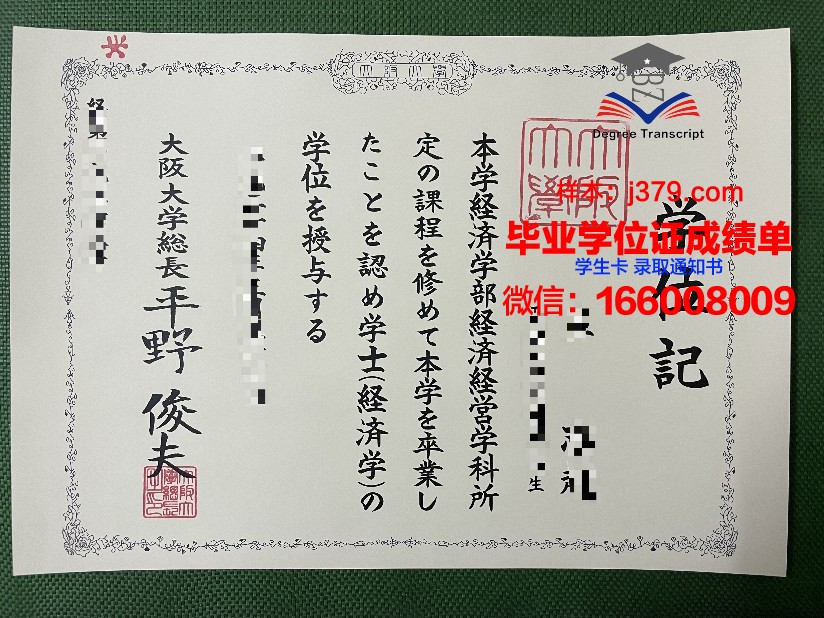 Degree Transcript
样本：j379.com
毕业学位证成绩单
学生卡 录取通知书
微信：166008009
学位記
生
本学経済学部経済経営学科所
定の課程を修めて本学を卒業し
たことを認め学士（経済学）の
学位を授与する
大阪大学総長 平野俊夫